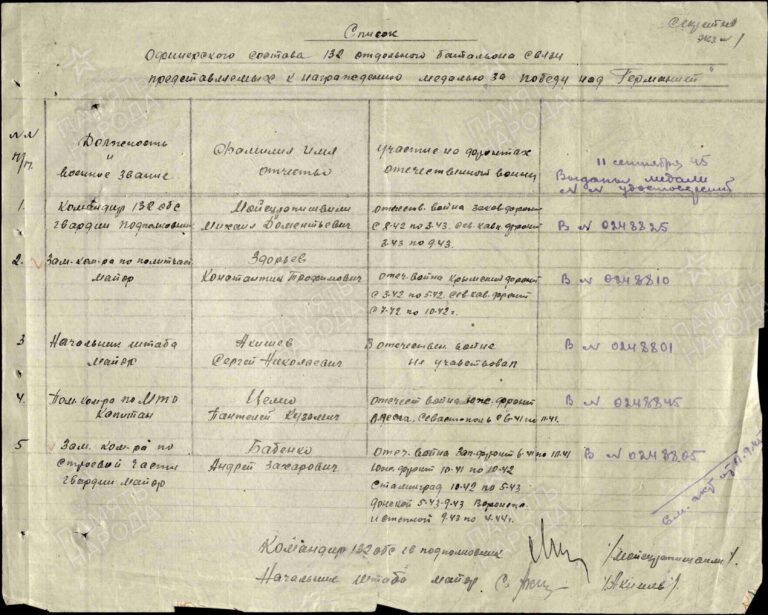 Секретно
экз № 1
Список
Офицерского состава 132 отдельного батальона связи
представляемых к награждению медалью „за победу над Германией"
№ №
п/п.
Должность
и
военное звание
Фамилия имя
отчество
участие на фронтах
отечественной войны
11 сентября 45
Выданы медали
№ № удостоверений
1.
Командир 132 обс
гвардии подполковник
Михаил Доментьевич
отечеств. война закав. фронт
с 8.42 по 3.43. Сев. кавк. фронт
3.43 по 9.43.
В № 0248825
2.
Зам. ком-ра по политчасти
майор
Здорьев
Константин Трофимович
отеч. война Крымский фронт
с 3.42 по 5.42. Сев. кав. фронт
с 7-42 по 10.42 г.
В № 0248810
3
Начальник штаба
майор
Акишев
Сергей Николаевич
В отечествен. войне
не учавствовал
В № 0248801
4.
Пом. ком-ра по МТО
Капитан
Пантелей Кузьмич
отечест. война юж. фронт
Одесса, Севастополь с 6-41 по 11-41.
В № 0248845
5
Зам. ком-ра по
строевой части
гвардии майор
Бабенко
Андрей Захарович
отеч. война Зап. фронт 6-41 по 10-41
Юж. фронт 10-41 по 10-42
Сталинград 10-42 по 5-43
Донской 5-43-9.43 Воронеж.
и степной 9.43 по 4.44 г.
В № 0248805
См. акт от 11.9.45
Командир 132 обс гв подполковник
Начальник штаба майор
/Акишев/.
ПАМЯТЬ
НАРОДА